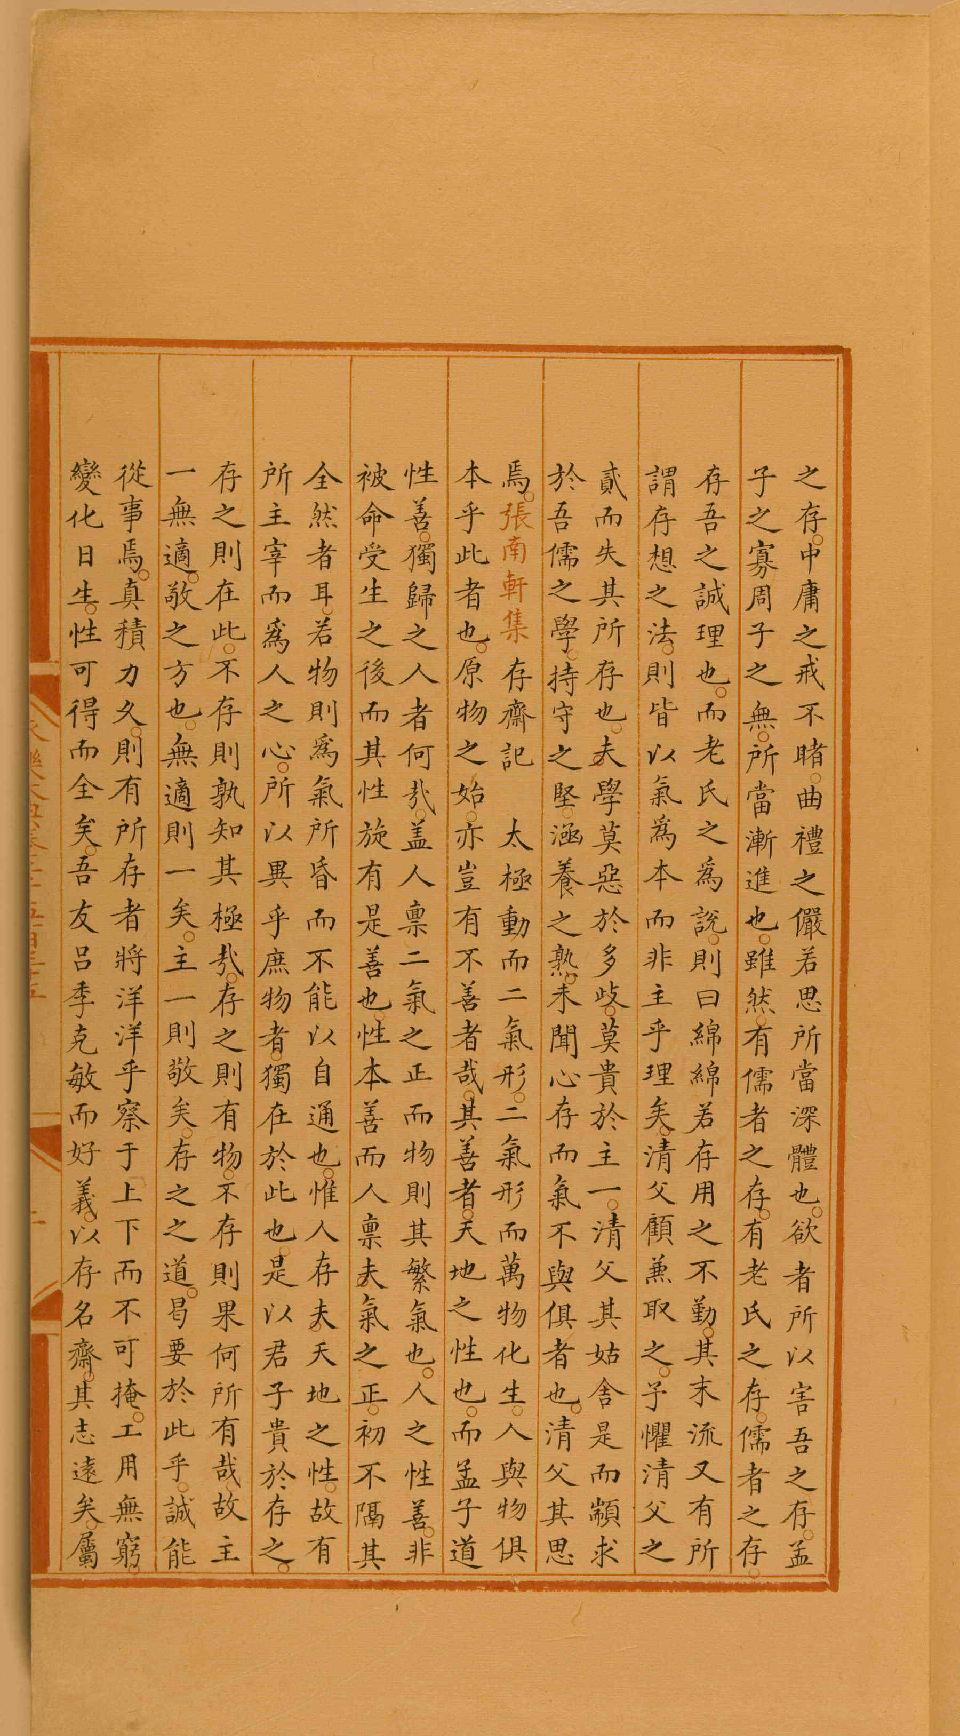 之存。中庸之戒不睹。曲禮之儼若思所當深體也。欲者所以害吾之存。孟
子之寡周子之無。所當漸進也。雖然。有儒者之存。有老氏之存。儒者之存。
存吾之誠理也。而老氏之爲說。則曰綿綿若存用之不勤。其末流又有所
謂存想之法。則皆以氣爲本而非主乎理矣。清父顧兼取之。予懼清父之
貳而失其所存也。夫學莫惡於多歧。莫貴於主一。清父其姑舍是而顓求
於吾儒之學。持守之堅。涵養之熟。未聞心存而氣不與俱者也。清父其思
焉。張南軒集 存齋記 太極動而二氣形。二氣形而萬物化生。人與物俱
本乎此者也。原物之始。亦豈有不善者哉。其善者。天地之性也。而孟子道
性善。獨歸之人者何㢤。盖人禀二氣之正而物則其繁氣也。人之性善。非
被命受生之後而其性旋有是善也。性本善而人禀夫氣之正。初不隔其
全然者耳。若物則爲氣所昏而不能以自通也。惟人存夫天地之性。故有
所主宰而爲人之心。所以異乎庶物者。獨在於此也。是以君子貴於存之。
存之則在此。不存則孰知其極㢤。存之則有物。不存則果何所有哉。故主
一無適。敬之方也。無適則一矣。主一則敬矣。存之之道。曷要於此乎。誠能
從事焉。真積力久。則有所存者將洋洋乎察于上下而不可掩。工用無窮。
變化日生。性可得而全矣。吾友呂季克敏而好義。以存名齋。其志遠矣。屬